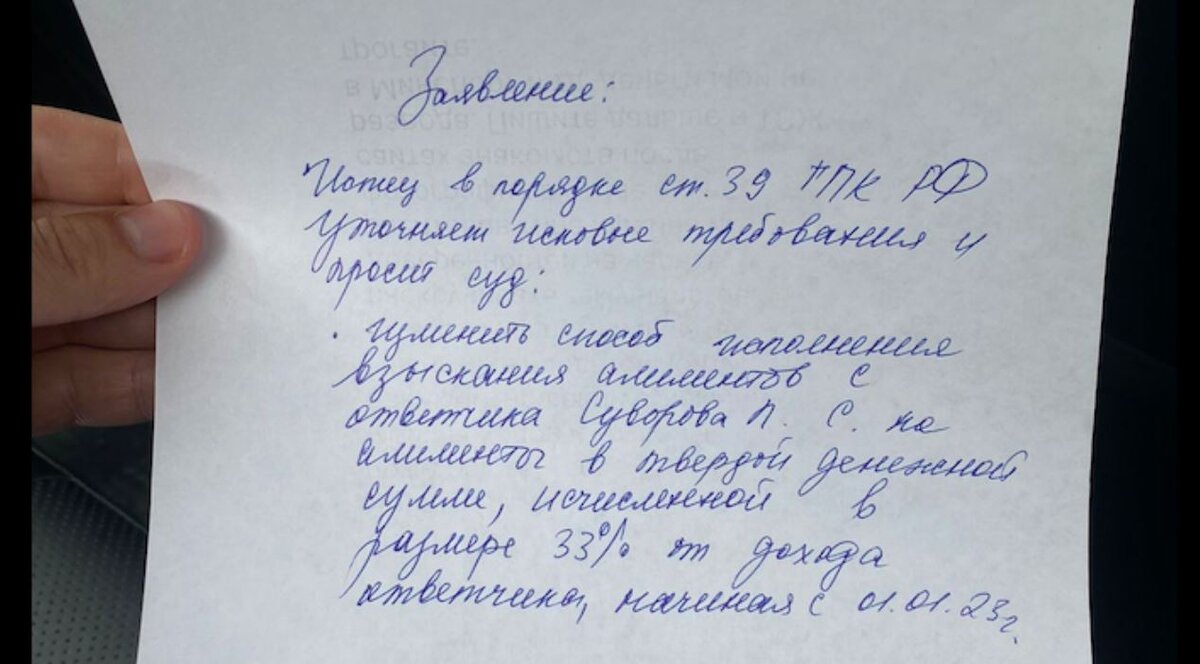 Заявление:
Истец в порядке ст. 39 ГПК РФ
уточняет исковые требования и
просит суд:
. изменить способ исполнения
взыскания алиментов с
ответчика Суворова П. С. на
алименты в твердой денежной
сумме, исчисленной в
размере 33% от дохода
ответчика, начиная с 01.01.23г.